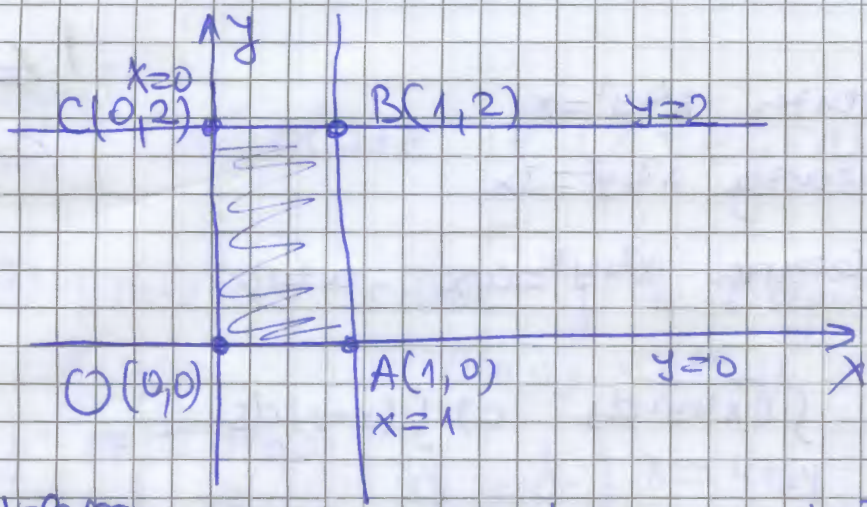 y
x=0
C(0,2) B(1,2) y=2
O(0,0) A(1,0) y=0 X
x=1